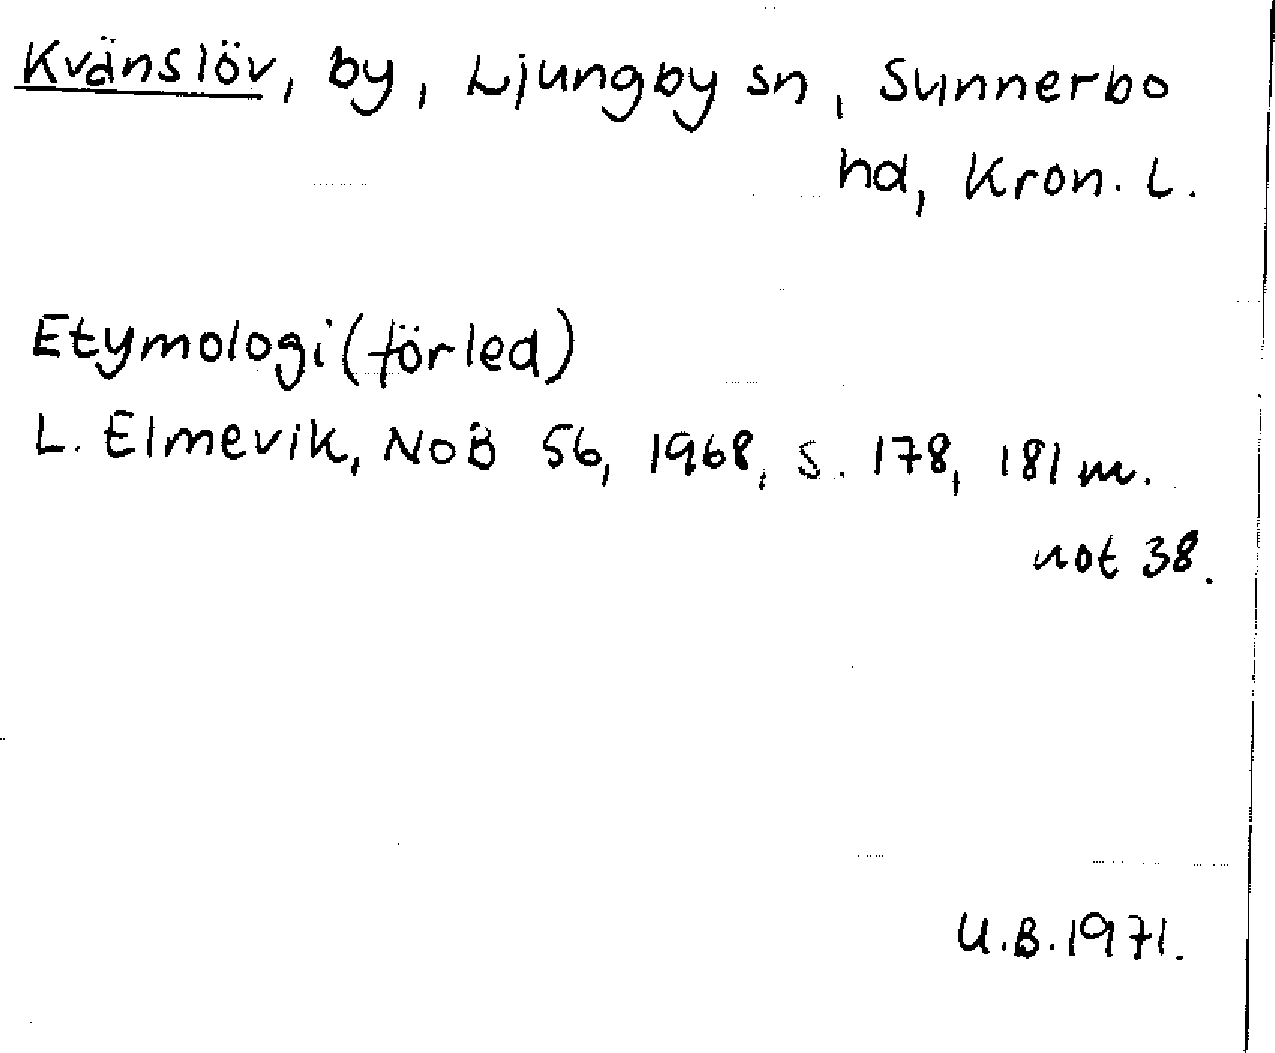 Kvänslöv, by, Ljungby sn, Sunnerbo
hd, Kron. L.
Etymologi (förled)
L. Elmevik, NoB 56, 1968, s. 178, 181 m.
not 38.
U.B. 1971.